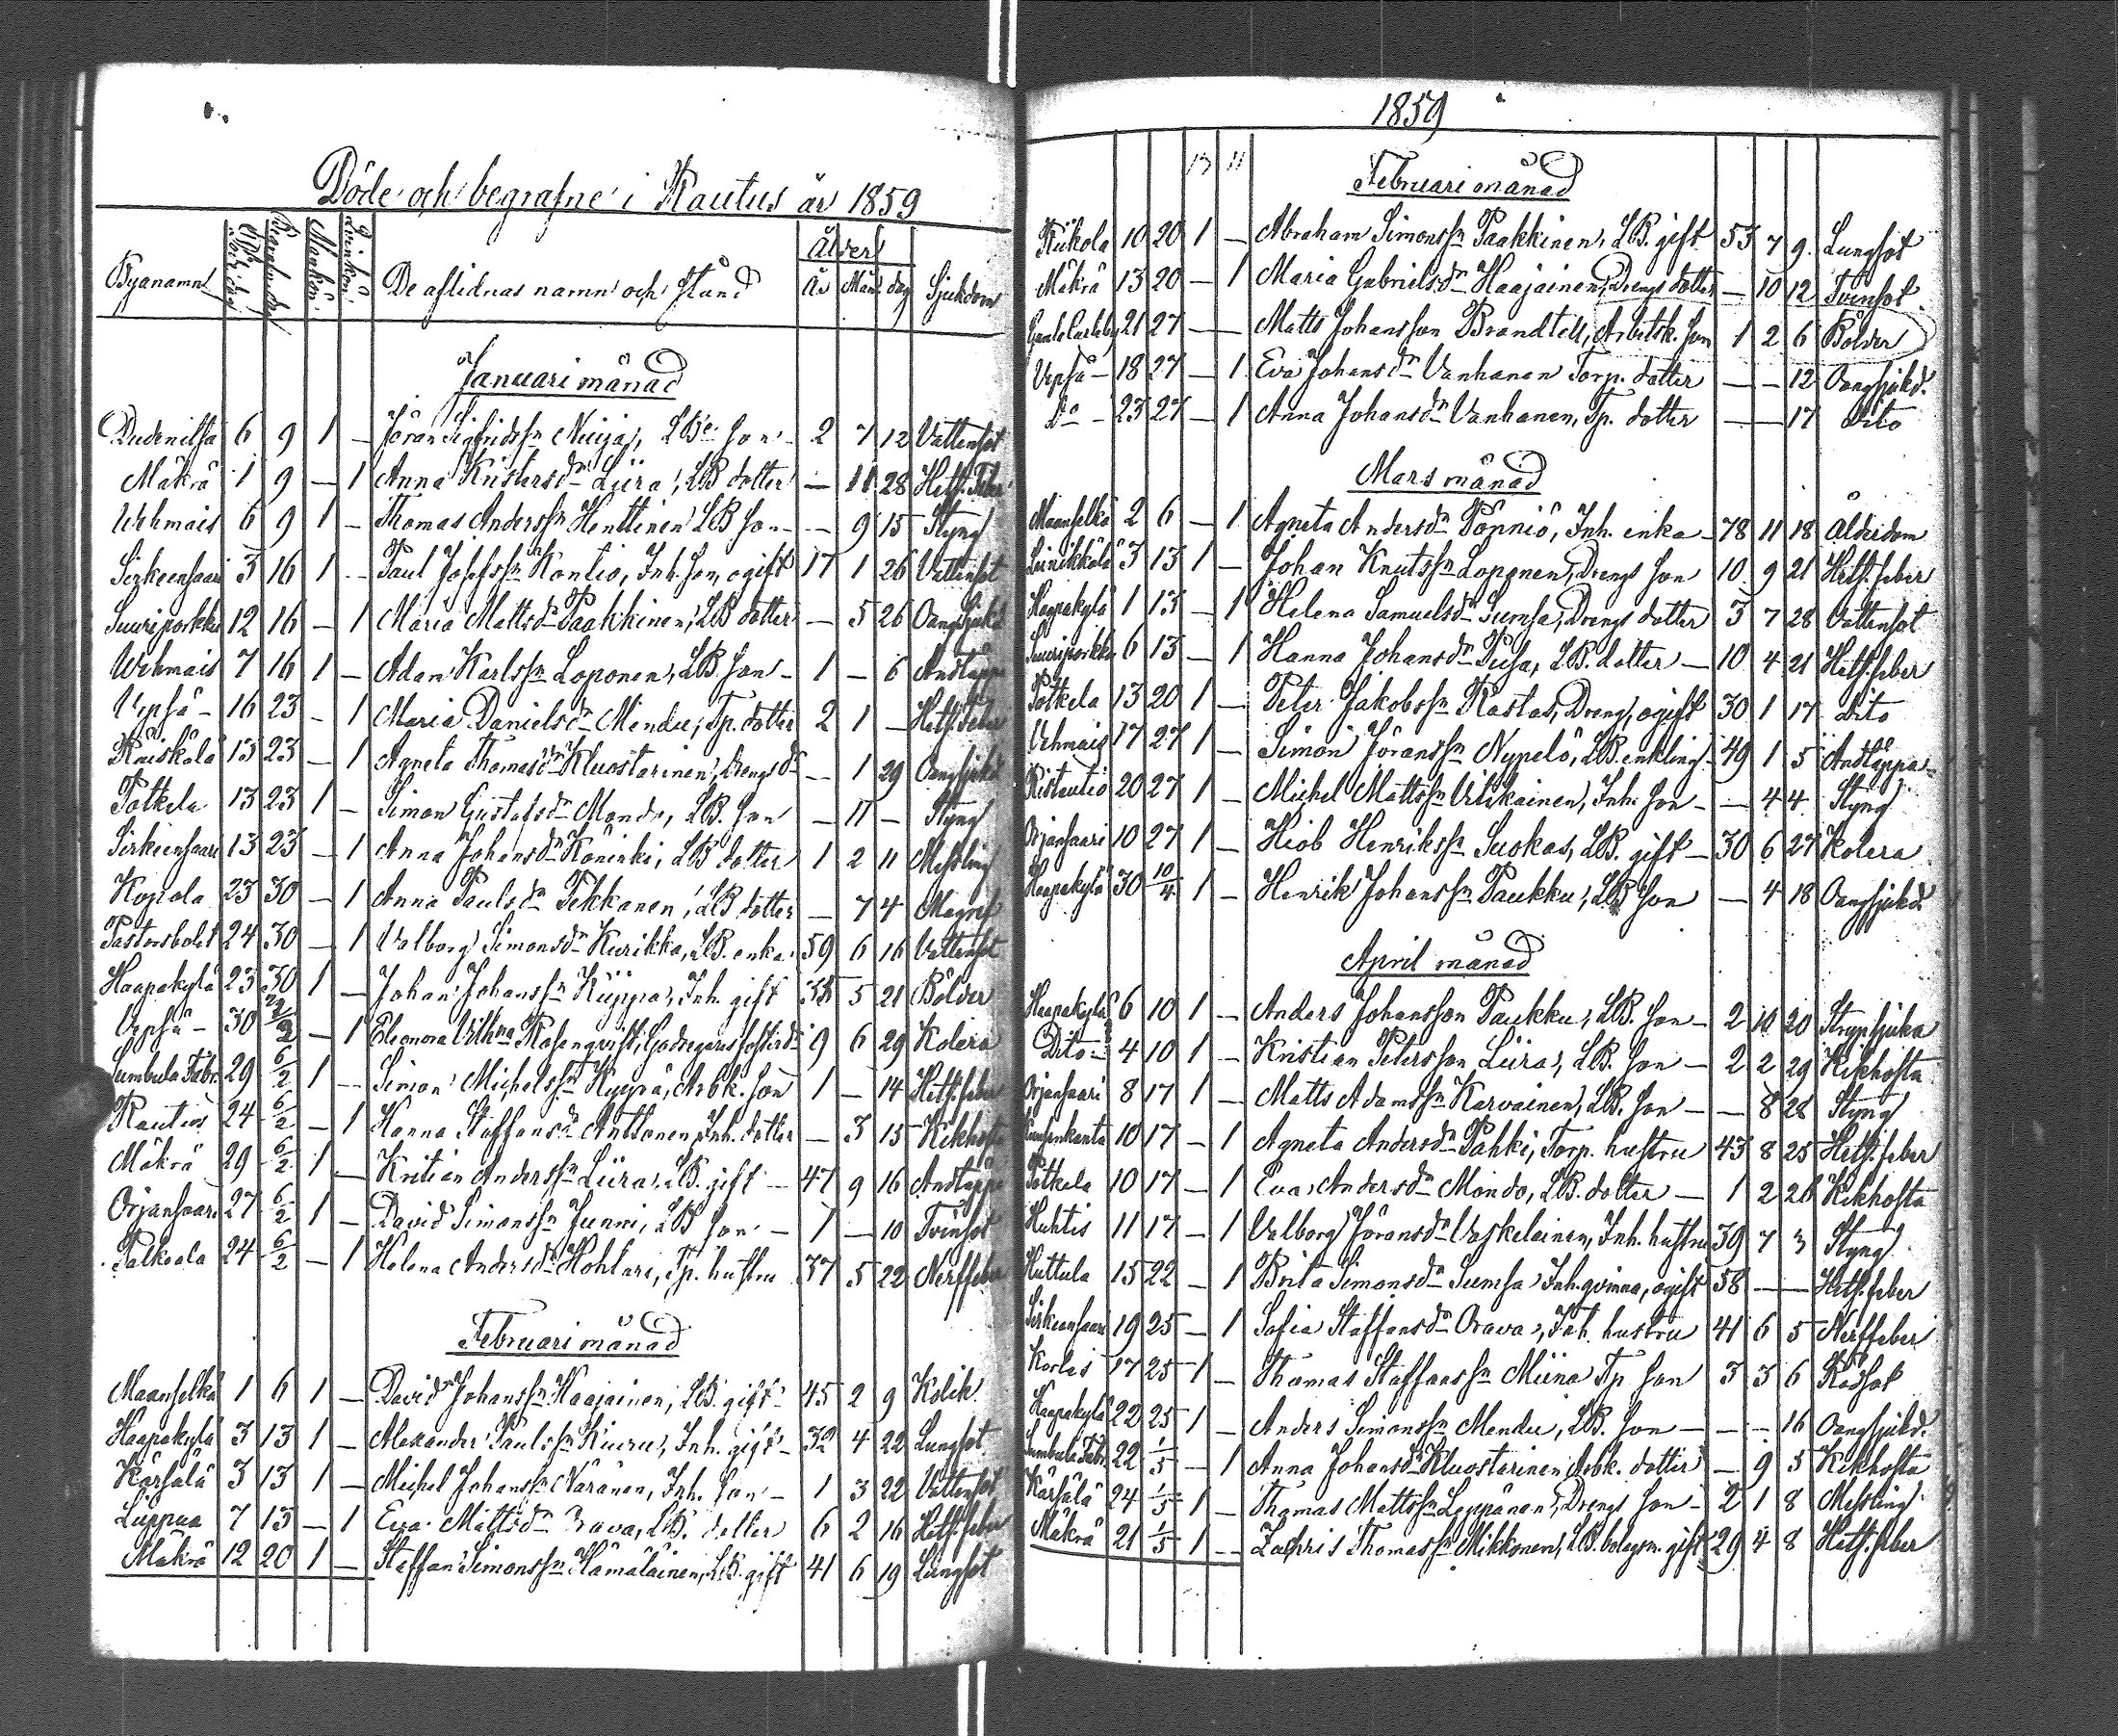 Döde och begrafne i Rautus år 1859
Byanamn Mankön. Qvinkön. De aflidnas namn och stånd Ålder År Mån. dag Sjukdom
Januari månad
6 9 1 — Jöran Sigfridssn LBe. son 2 7 12 Vattensot
Mäkrä 1 9 — 1 Anna Kristersdr Liira, LB dotter — 11 28 Hets. Feber
Wehmais 6 9 1 — Thomas Anderssn Henttinen LB son — 9 15 Styng
Sirkeensaari 3 16 1 — Paul Josefssn Kontio, Inh. son, ogift 17 1 26 Vattensot
Suuriporkku 12 16 — 1 Maria Mattsdr Paakkinen, LB dotter — 5 26 Oangsjukd
Wehmais 7 16 1 — Adam Karlssn Loponen, LB. son — 1 — 6 Andtäppa
Vepsä — 16 23 — 1 Maria Danielsdr Mendu, Tp. dotter 2 1 — Hets. Feber
Räiskälä 13 23 — 1 Agneta Thomasdr Kluostarinen, Drengs dr — 1 29 Oangsjukd
Potkela 13 23 1 — Simon Gustafsdr Mondo, LB. son — 11 — Styng
Sirkeensaari 13 23 — 1 Anna Johansdr Köninki, LB dotter 1 2 11 Messling
Kopiola 23 30 — 1 Anna Paulsdr Pekkanen, LB dotter — 7 4 Magref
Pastorsbolet 24 30 — 1 Valborg Simonsdr Kurikka, LB. enka 59 6 16 Vattensot
Haapakylä 23 30 1 — Johan Johanssn Küppa, Inh. gift 38 5 21 Bölder
Vepsä — 30 — 1 Eleonora Vilhna Rosenqvist, 9 6 29 Kolera
Sumbula Fabr. 29 6/2 1 — Simon Michelssn Kyyrä, Arbk. son 1 — 14 Hets. feber
Rautus 24 6/2 — 1 Hanna Staffansdr Anttonen, Inh. dotter — 3 15 Kikhosta
Mäkrä 29 6/2 1 — Kristian Anderssn Liira, LB. gift — 47 9 16 Andtäppa
Orjansaari 27 6/2 1 — David Simonssn Junni, LB son — 1 — 10 Tvinsot
Palkeala 24 6/2 — 1 Helena Andersdr Kohtari, Tp. hustru 37 5 22 Nerffeber
Februari månad
Maanselkä 1 6 1 — David Johanssn Haajainen, LB. gift 45 2 9 Kolik
Haapakylä 3 13 1 — Alexander Paulssn Kiuru, Inh. gift — 32 4 22 Lungsot
Kärsälä 3 13 1 — Michel Johanssn Näränen, Inh. son — 1 3 22 Vattensot
Liippua 7 13 — 1 Eva Mattsdr Orava, LB. dotter 6 2 16 Hets. feber
Mäkrä 12 20 1 — Staffan Simonssn Hämäläinen, LB. gift 41 6 19 Lungsot
1859
Februari månad
Riikola 10 20 1 — Abraham Simonssn Paakkinen, LB. gift 53 7 9 Lungsot
Mäkrä 13 20 — 1 Maria Gabrielsdr Haajainen, Drengs dotter — 10 12 Tvinsot
Gamla Carleby 21 27 — — Matts Johansson Brandtell, Arbetsk. son 1 2 6 Bölder
Vepsä — 18 27 — 1 Eva Johansdr Vanhanen Torp. dotter — — 12 Oangsjukd.
Do — 23 27 — 1 Anna Johansdr Vanhanen, Tp. dotter — — 17 Dito
Mars månad
Maanselkä 2 6 — 1 Agneta Andersdr Pönniö, Inh. enka — 78 11 18 Ålderdom
Leinikkälä 3 13 1 — Johan Knutssn Loponen, Drengs son 10 9 21 Hets. feber
Haapakylä 1 13 — 1 Helena Samuelsdr Sumsa, Drengs dotter 3 7 28 Vattensot
Suuriporkku 6 13 — 1 Hanna Johansdr Pusa, LB. dotter — 10 4 21 Hets. feber
Potkela 13 20 1 — Peter Jakobssn Rastas, Dreng, ogift 30 1 17 Dito
Vehmais 17 27 1 — Simon Jöranssn Nypelö, LB. enkling 49 1 5 Andtäppa
Ristautio 20 27 1 — Michel Mattssn Vitikainen, Inh. son — — 4 4 Styng
Orjansaari 10 27 1 — Hiob Henrikssn Suokas, LB. gift — 30 6 27 Kolera
Haapakylä 30 10/4 1 — Henrik Johanssn Paukku, LB son — 4 18 Oangsjukd.
April månad
Haapakylä 6 10 1 — Anders Johansson Paukku, LB. son — 2 10 20 Strypsjuka
Dito — 4 10 1 — Kristian Petersson Liira, LB. son — 2 2 29 Kikhosta
Orjansaari 8 17 1 — Matts Adamssn Karvainen, LB. son — — 8 28 Styng
10 17 — 1 Agneta Andersdr Pahki, Torp. hustru 43 8 25 Hets. feber
Potkela 10 17 — 1 Eva Andersdr Mondo, LB. dotter — 1 2 26 Kikhosta
Huhtis 11 17 — 1 Valborg Jöransdr Vaskelainen, Inh. hustru 39 7 3 Styng
Huttula 15 22 — 1 Brita Simonsdr Sumsa, Inh. qvinna, ogift 58 — — Hets. feber
Sirkeensaari 19 25 — 1 Sofia Staffansdr Orava, Inh. hustru 41 6 5 Nerffeber
Korlis 17 25 1 — Thomas Staffanssn Miina Tp son 3 3 6 Rödsot
Haapakylä 22 25 1 — Anders Simonssn Mendu, LB. son — — — 16 Oangsjukd.
Sumbula Fabr. 22 1/5 — 1 Anna Johansdr Kluostarinen, Arbk. dotter — 9 5 Kikhosta
Kärsälä 24 1/5 1 — Thomas Mattssn Leppänen, Drengs son — 2 1 8 Messling
Mäkrä 21 1/5 1 — Zachris Thomassn Mikkonen, LB. bolagsm. gift 29 4 8 Hets. feber